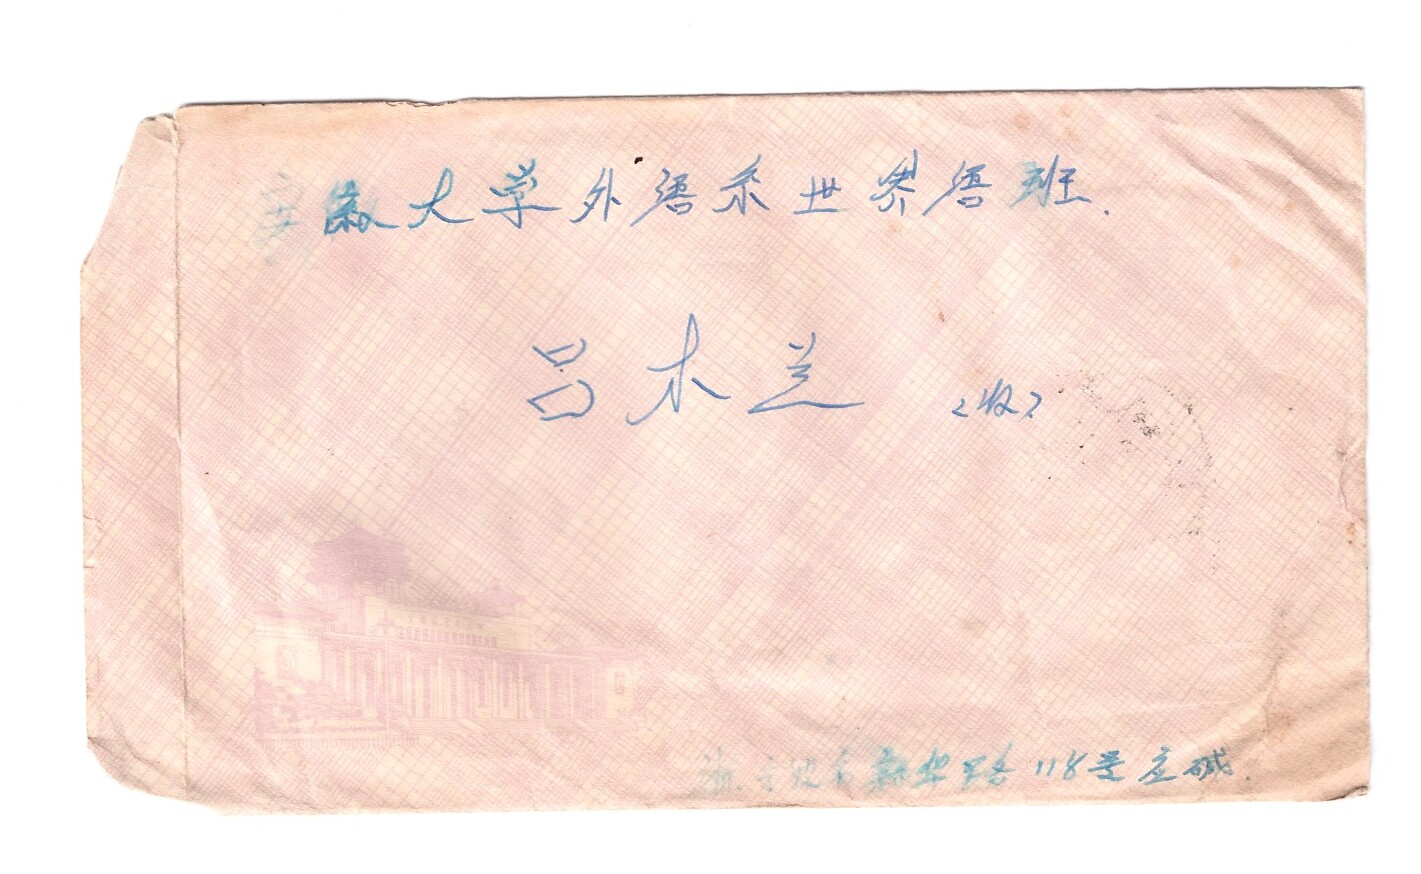 安徽大学外语系世界语班.
吕木兰 (收)
新华路118号应碱.